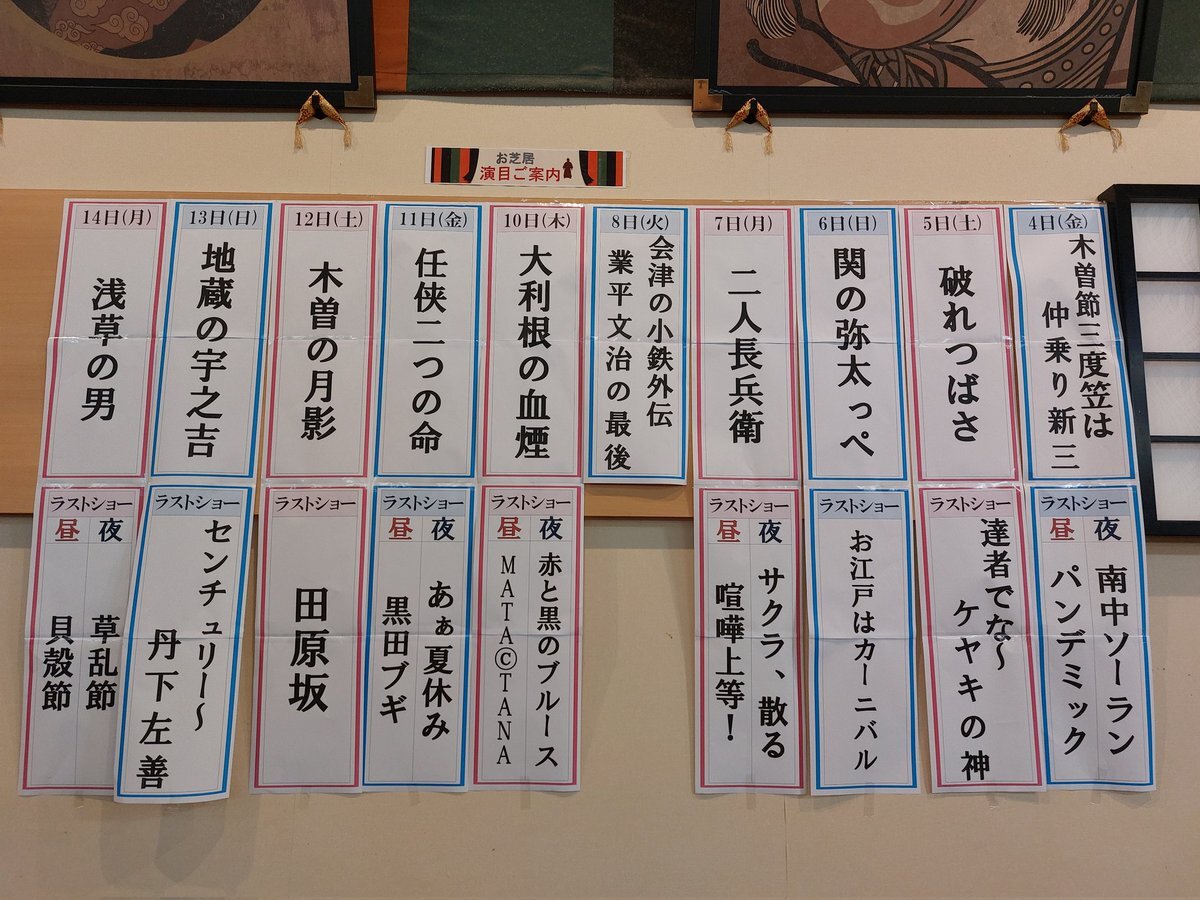 お芝居
演目ご案内
4日(金)
木曽節三度笠は
仲乗り新三
ラストショー
夜
南中ソーラン
昼
パンデミック
5日(土)
破れつばさ
ラストショー
達者でな～
ケヤキの神
6日(日)
関の弥太っぺ
ラストショー
お江戸はカーニバル
7日(月)
二人長兵衛
ラストショー
夜
サクラ、散る
昼
喧嘩上等！
8日(火)
会津の小鉄外伝
業平文治の最後
10日(木)
大利根の血煙
ラストショー
夜
赤と黒のブルース
昼
MATAⒸTANA
11日(金)
任侠二つの命
ラストショー
夜
あぁ夏休み
昼
黒田ブギ
12日(土)
木曽の月影
ラストショー
田原坂
13日(日)
地蔵の宇之吉
ラストショー
センチュリー～
丹下左善
14日(月)
浅草の男
ラストショー
夜
草乱節
昼
貝殻節